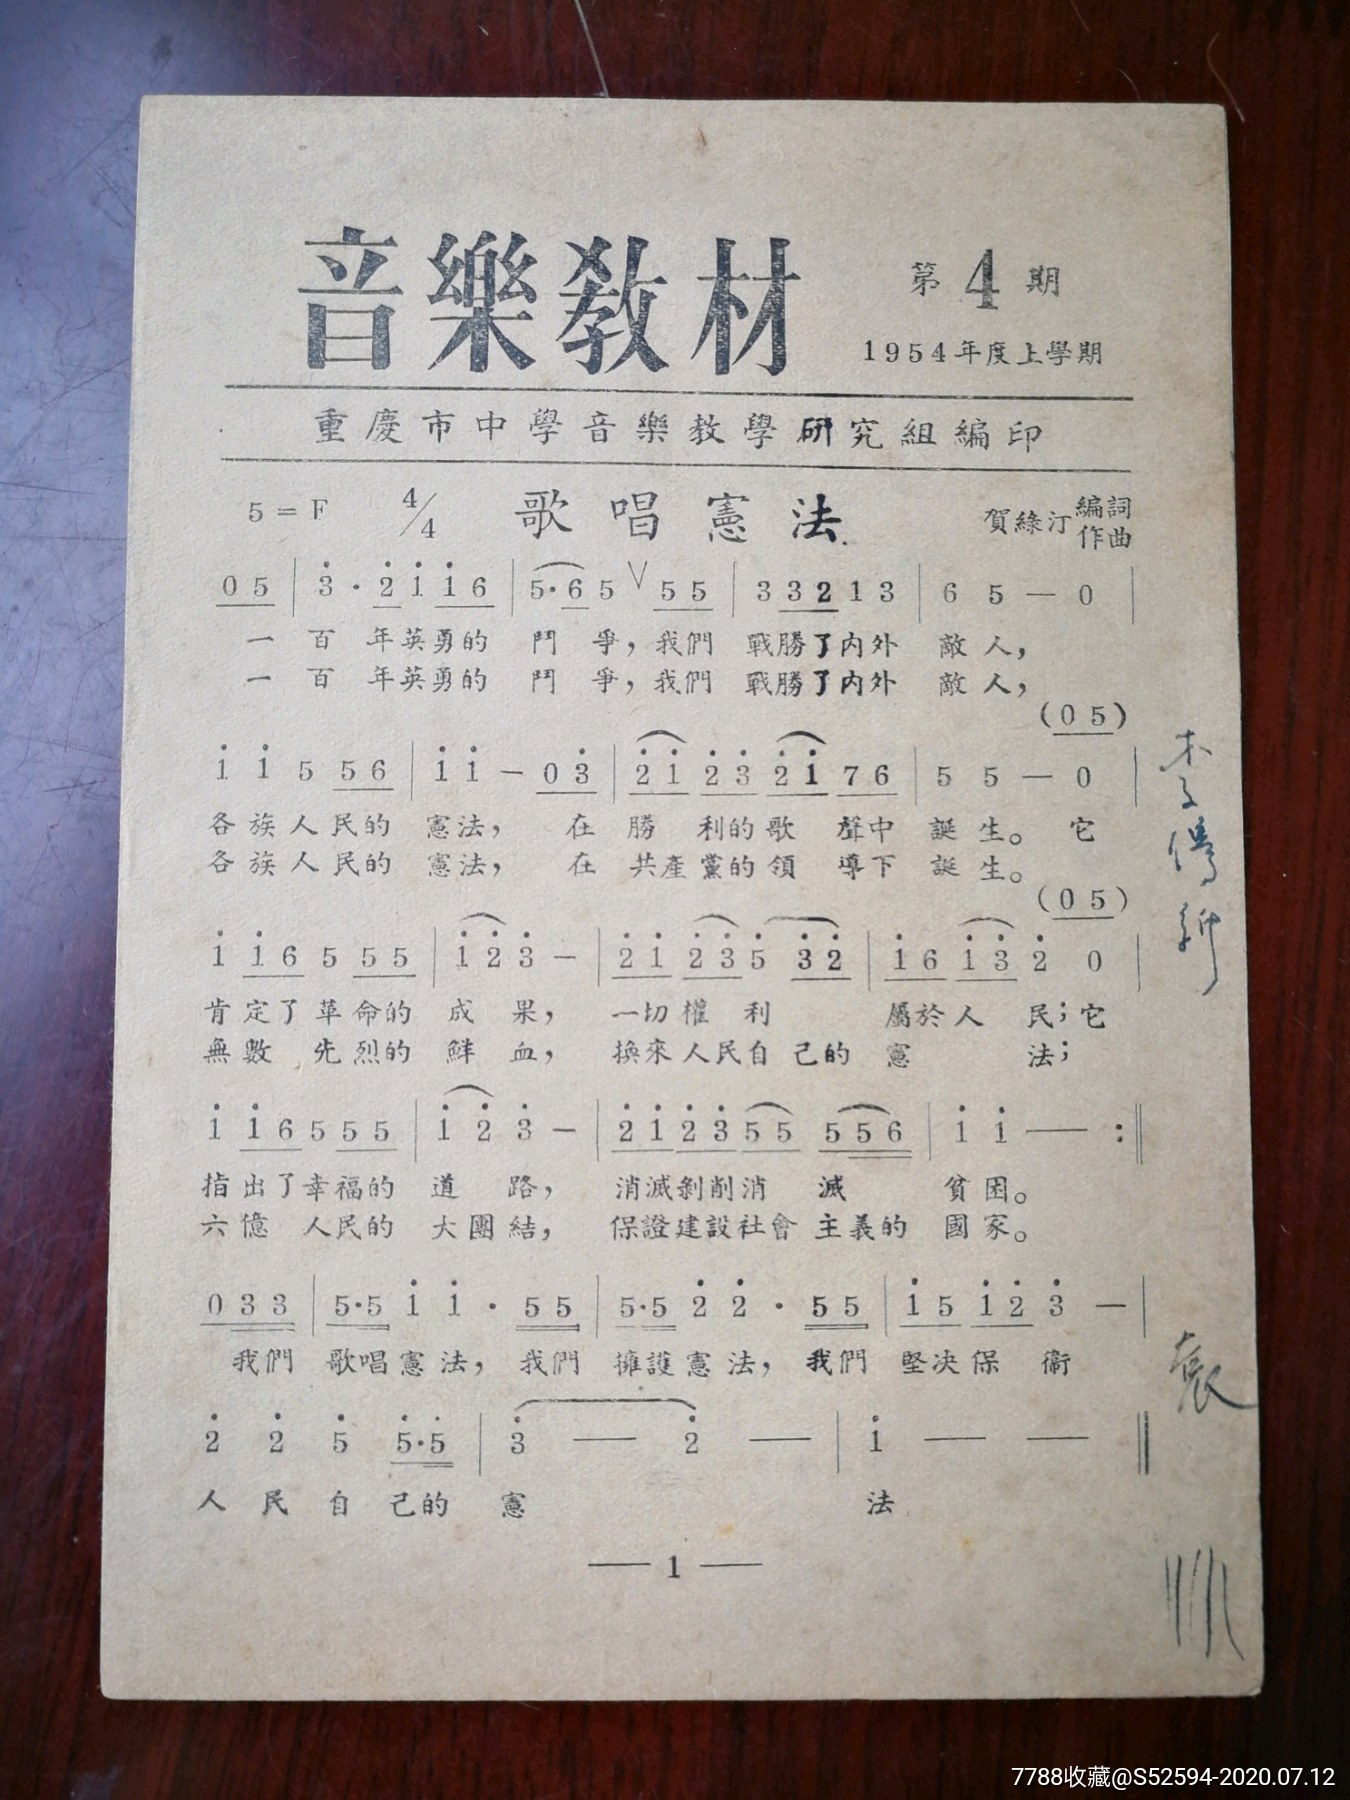 音樂敎材
第4期
1954年度上學期
重慶市中學音樂教學研究組編印
5=F 4/4 歌唱憲法 賀綠汀 編詞 作曲
0 5 | 3̇ · 2̇ 1̇ 1̇ 6 | 5·6 5 ∨ 5 5 | 3 3 2 1 3 | 6 5 — 0 |
一百年英勇的鬥爭，我們戰勝了內外敵人，
一百年英勇的鬥爭，我們戰勝了內外敵人，
(0 5)
1̇ 1̇ 5 5 6 | 1̇ 1̇ — 0 3̇ | 2̇ 1̇ 2̇ 3̇ 2̇ 1̇ 7 6 | 5 5 — 0 |
各族人民的憲法，在勝利的歌聲中誕生。它
各族人民的憲法，在共產黨的領導下誕生。
(0 5)
1̇ 1̇ 6 5 5 5 | 1̇ 2̇ 3̇ — | 2̇ 1̇ 2̇ 3̇ 5̇ 3̇ 2̇ | 1̇ 6 1̇ 3̇ 2̇ 0 |
肯定了革命的成果，一切權利屬於人民；它
無數先烈的鮮血，換來人民自己的憲法；
1̇ 1̇ 6 5 5 5 | 1̇ 2̇ 3̇ — | 2̇ 1̇ 2̇ 3̇ 5 5 5 5 6 | 1̇ 1̇ — :||
指出了幸福的道路，消滅剝削消滅貧困。
六億人民的大團結，保證建設社會主義的國家。
0 3 3 | 5·5 1̇ 1̇ · 5 5 | 5·5 2̇ 2̇ · 5 5 | 1̇ 5 1̇ 2̇ 3̇ — |
我們歌唱憲法，我們擁護憲法，我們堅决保衞
2̇ 2̇ 5̇ 5̇·5̇ | 3̇ — 2̇ — | 1̇ — — ||
人民自己的憲法
— 1 —
7788收藏@S52594-2020.07.12